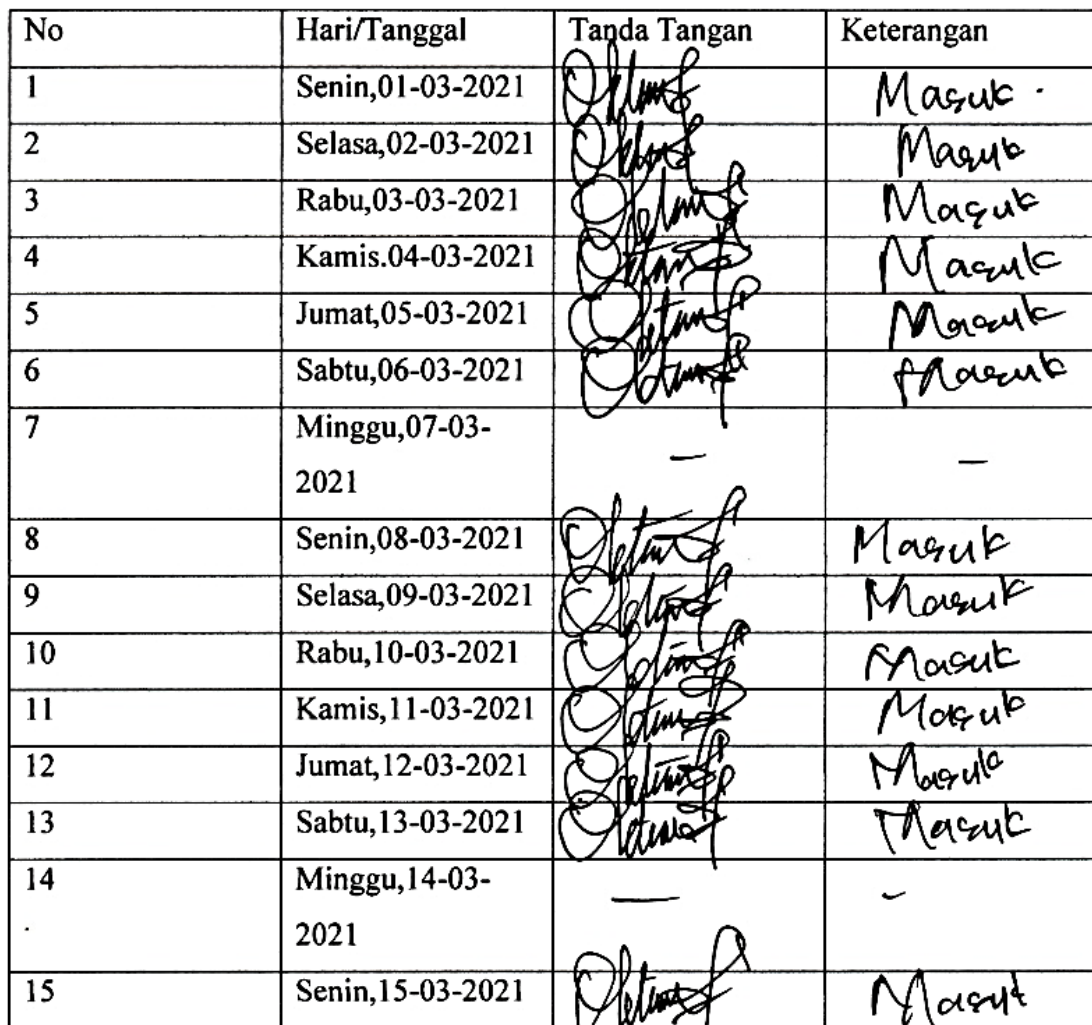 No Hari/Tanggal Tanda Tangan Keterangan
1 Senin,01-03-2021 Masuk
2 Selasa,02-03-2021 Masuk
3 Rabu,03-03-2021 Masuk
4 Kamis.04-03-2021 Masuk
5 Jumat,05-03-2021 Masuk
6 Sabtu,06-03-2021 Masuk
7 Minggu,07-03- — —
2021
8 Senin,08-03-2021 Masuk
9 Selasa,09-03-2021 Masuk
10 Rabu,10-03-2021 Masuk
11 Kamis,11-03-2021 Masuk
12 Jumat,12-03-2021 Masuk
13 Sabtu,13-03-2021 Masuk
14 Minggu,14-03- — -
2021
15 Senin,15-03-2021 Masuk